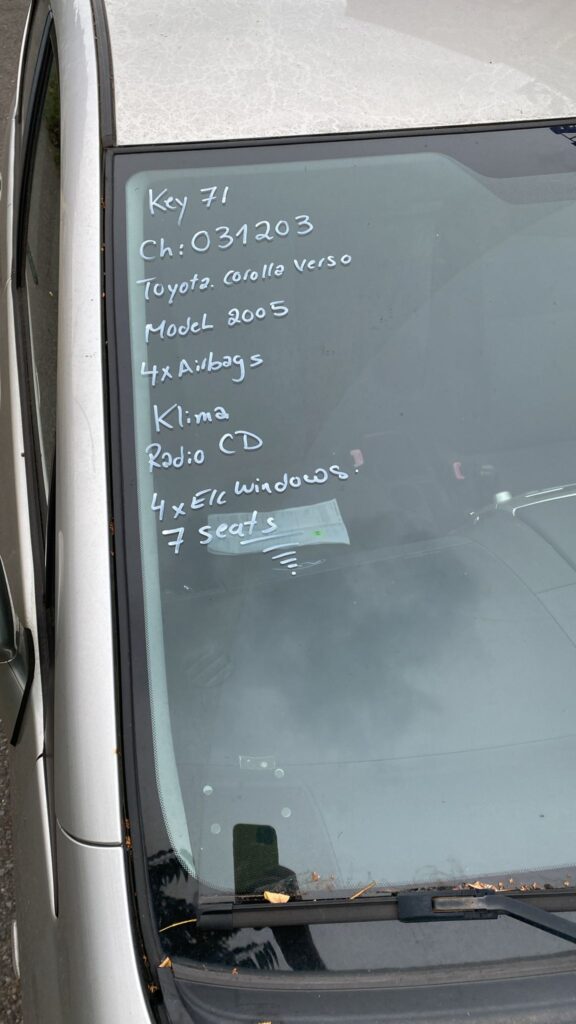 Key 71
Ch: 031203
Toyota. corolla verso
Model 2005
4x Airbags
Klima
Radio CD
4x Elc Windows.
7 Seats